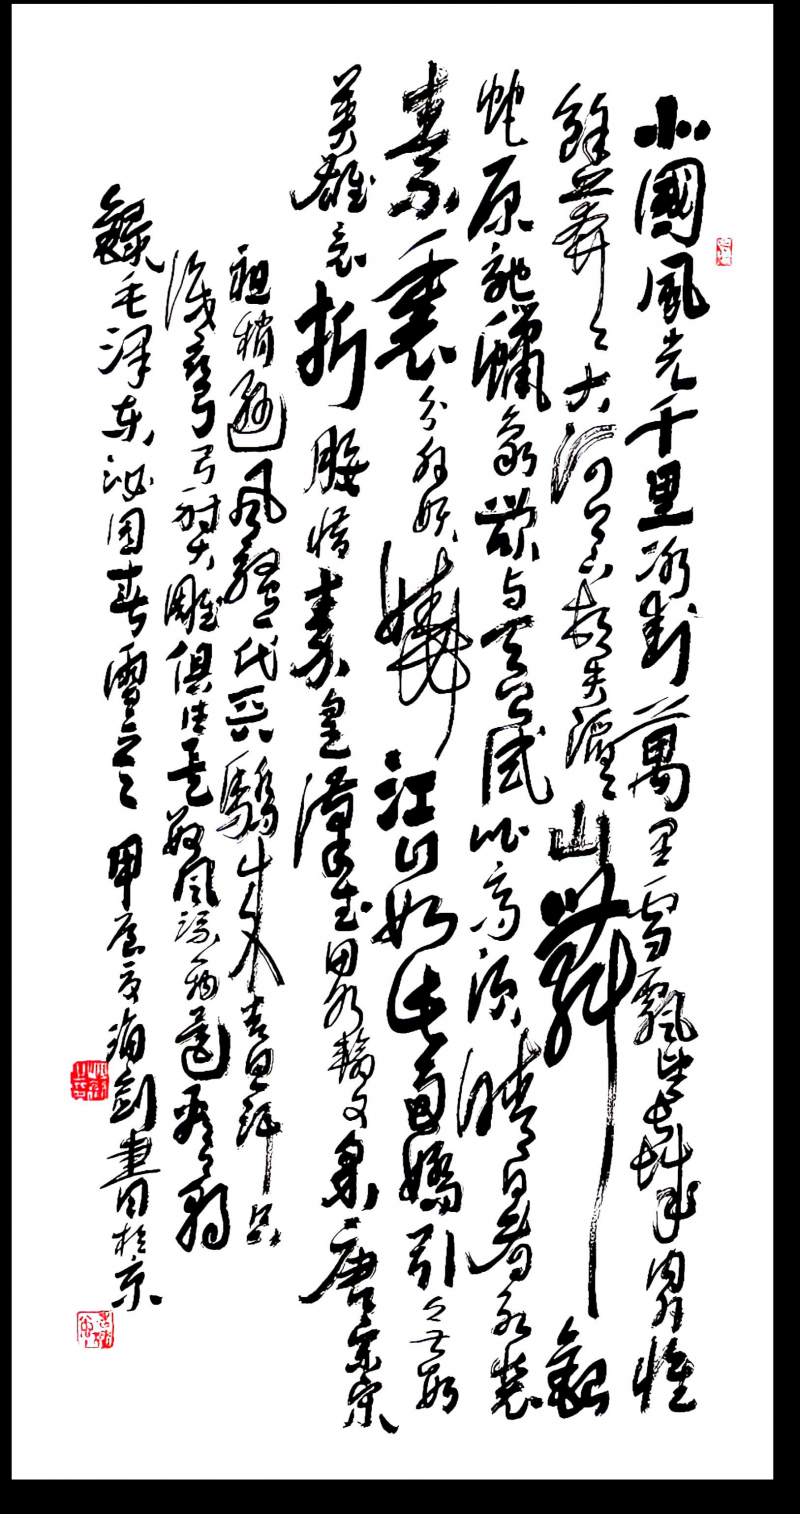 北國風光千里冰封萬里雪飄望長城内外惟
餘莽莽大河上下頓失滔滔山舞銀
蛇原馳蠟象欲与天公試比高須晴日看紅裝
素裹分外妖嬈江山如此多嬌引無數
英雄竞折腰惜秦皇漢武略輸文采唐宗宋
祖稍遜風騷一代天驕成吉思汗只
識彎弓射大雕俱往矣數風流人物還看今朝
錄毛泽东沁园春雪 甲辰夏 劍書 於京